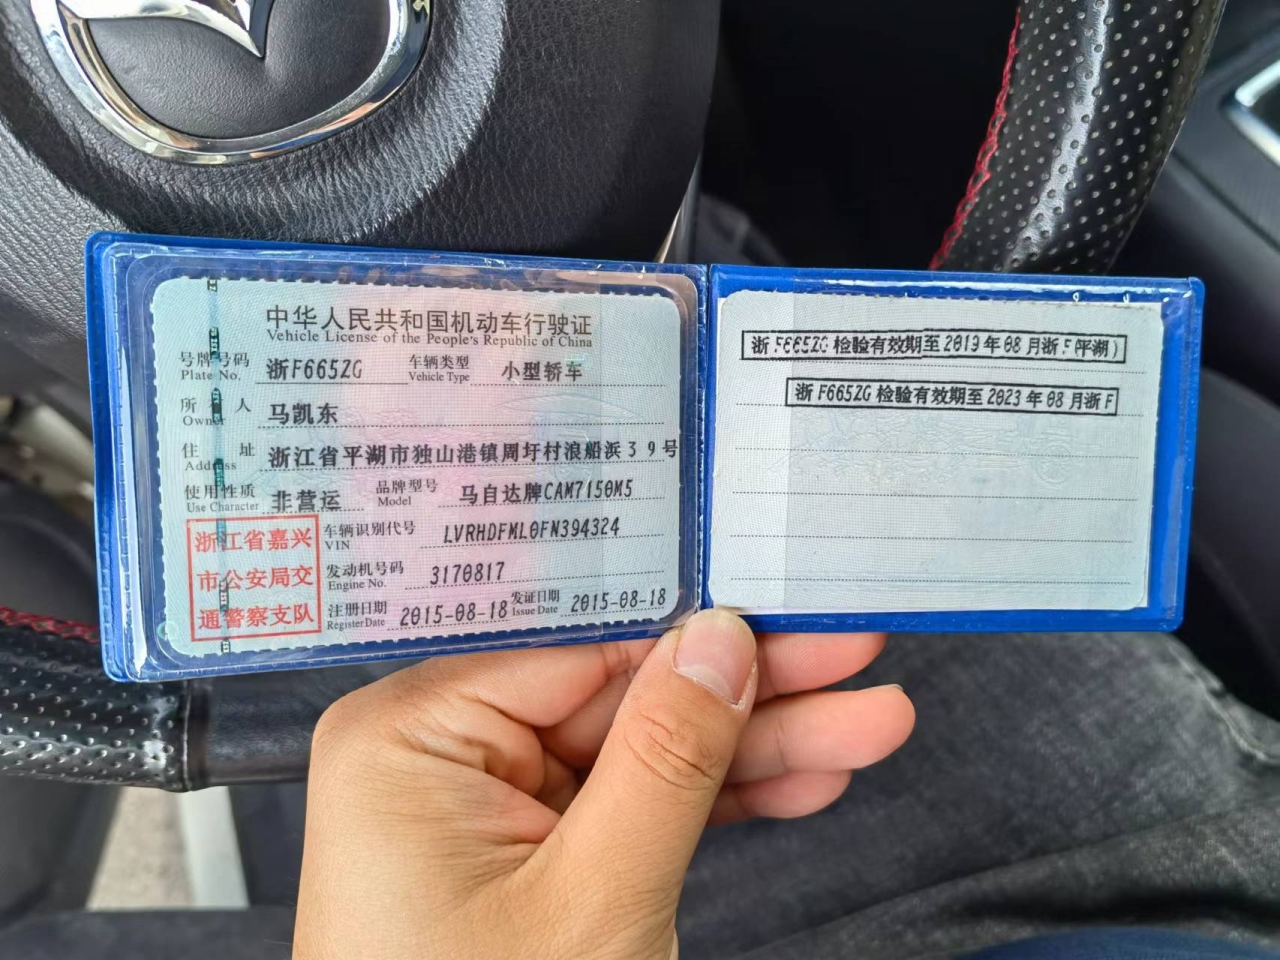 中华人民共和国机动车行驶证
Vehicle License of the People's Republic of China
号牌号码 浙F665ZG 车辆类型 小型轿车
Plate No. Vehicle Type
所有人 马凯东
Owner
住址 浙江省平湖市独山港镇周圩村浪船浜39号
Address
使用性质 非营运 品牌型号 马自达牌CAM7150M5
Use Character Model
浙江省嘉兴
市公安局交
通警察支队
车辆识别代号 LVRHDFML0FN394324
VIN
发动机号码 3170817
Engine No.
注册日期 2015-08-18 发证日期 2015-08-18
Register Date Issue Date
浙F665ZG 检验有效期至2019年08月浙F(平湖)
浙F665ZG 检验有效期至2023年08月浙F